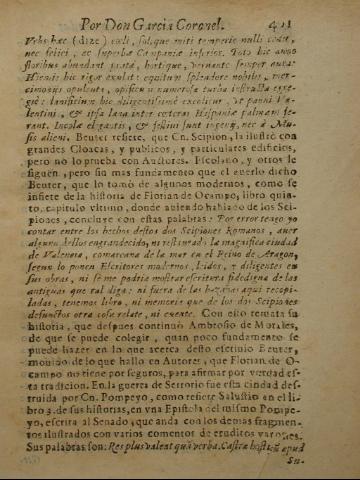 Por Don Garcia Coronel. 421
Vrbs hæc (dize) cœli, solique miti temperie nulli cedit,
nec felici, ac superbæ Campaniæ inferior. Toto hic anno
floribus abundant prata, hortique, vernante semper aura:
Hiemis hic rigor exulat: equitum splendore nobilis, mer-
cimoniis opulenta, opificum numerosa turba
lanificium hic diligentissimè excolitur, & panni Va-
lentini, & ipsa lana inter cæteras Hispaniæ palmam fe-
rant. Incolæ elegantis, & festivi sunt ingenij, nec à Mu-
sis alieni. Beuter refiere, que Cn. Scipion, la ilustrò con
grandes Cloacas, y publicos, y particulares edificios,
pero no lo prueba con Auctores. Escolano, y otros le
siguen, pero sin mas fundamento que el averlo dicho
Beuter, que lo tomò de algunos modernos, como se
infiere de la historia de Florian de Ocampo, libro quin-
to, capitulo vltimo, donde aviendo hablado de los Sci-
piones, concluye con estas palabras: Por error tengo yo
contar entre los hechos destos dos Scipiones Romanos, aver
alguno dellos engrandecido, ni restaurado la magnifica ciudad
de Valencia, comarcana de la mar en el Reino de Aragon,
segun lo ponen Escritores modernos, leidos, y diligentes en
sus obras, ni se me podria mostrar escritura fidedigna de las
antiguas que tal diga: ni fuera de las hazañas aqui recopi-
ladas, tenemos libro, ni memoria que de los dos Scipiones
defunctos otra cosa relate, ni cuente. Con esto remata su
historia, que despues continuò Ambrosio de Morales,
de que se puede colegir, quan poco fundamento se
puede hazer en lo que acerca desto escriuio Beuter,
mouido de lo que hallò en Autores, que Florian de O-
campo no tiene por seguros, para afirmar por verdad es-
ta tradicion. En la guerra de Sertorio fue esta ciudad des-
truida por Cn. Pompeyo, como refiere Salustio en el li-
bro 3. de sus historias, en vna Epistola del mismo Pompe-
yo, escrita al Senado, que anda con los demas fragmen-
tos ilustrados con varios comentos de eruditos varones.
Sus palabras son: Res plus valent quàm verba. Castra hostium apud
Su-